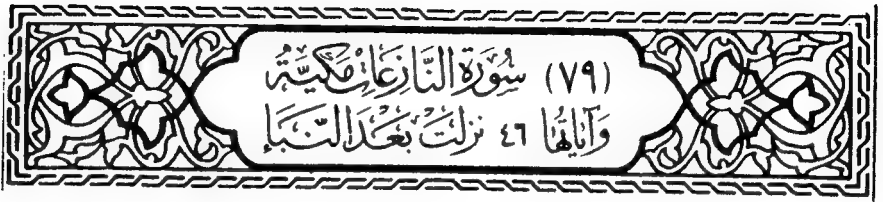 (٧٩) سُورَة النَّازِعَاتِ مَكِّيَّةٌ
وَآيَاتُهَا ٤٦ نَزَلَتْ بَعْدَ النَّبَإِ